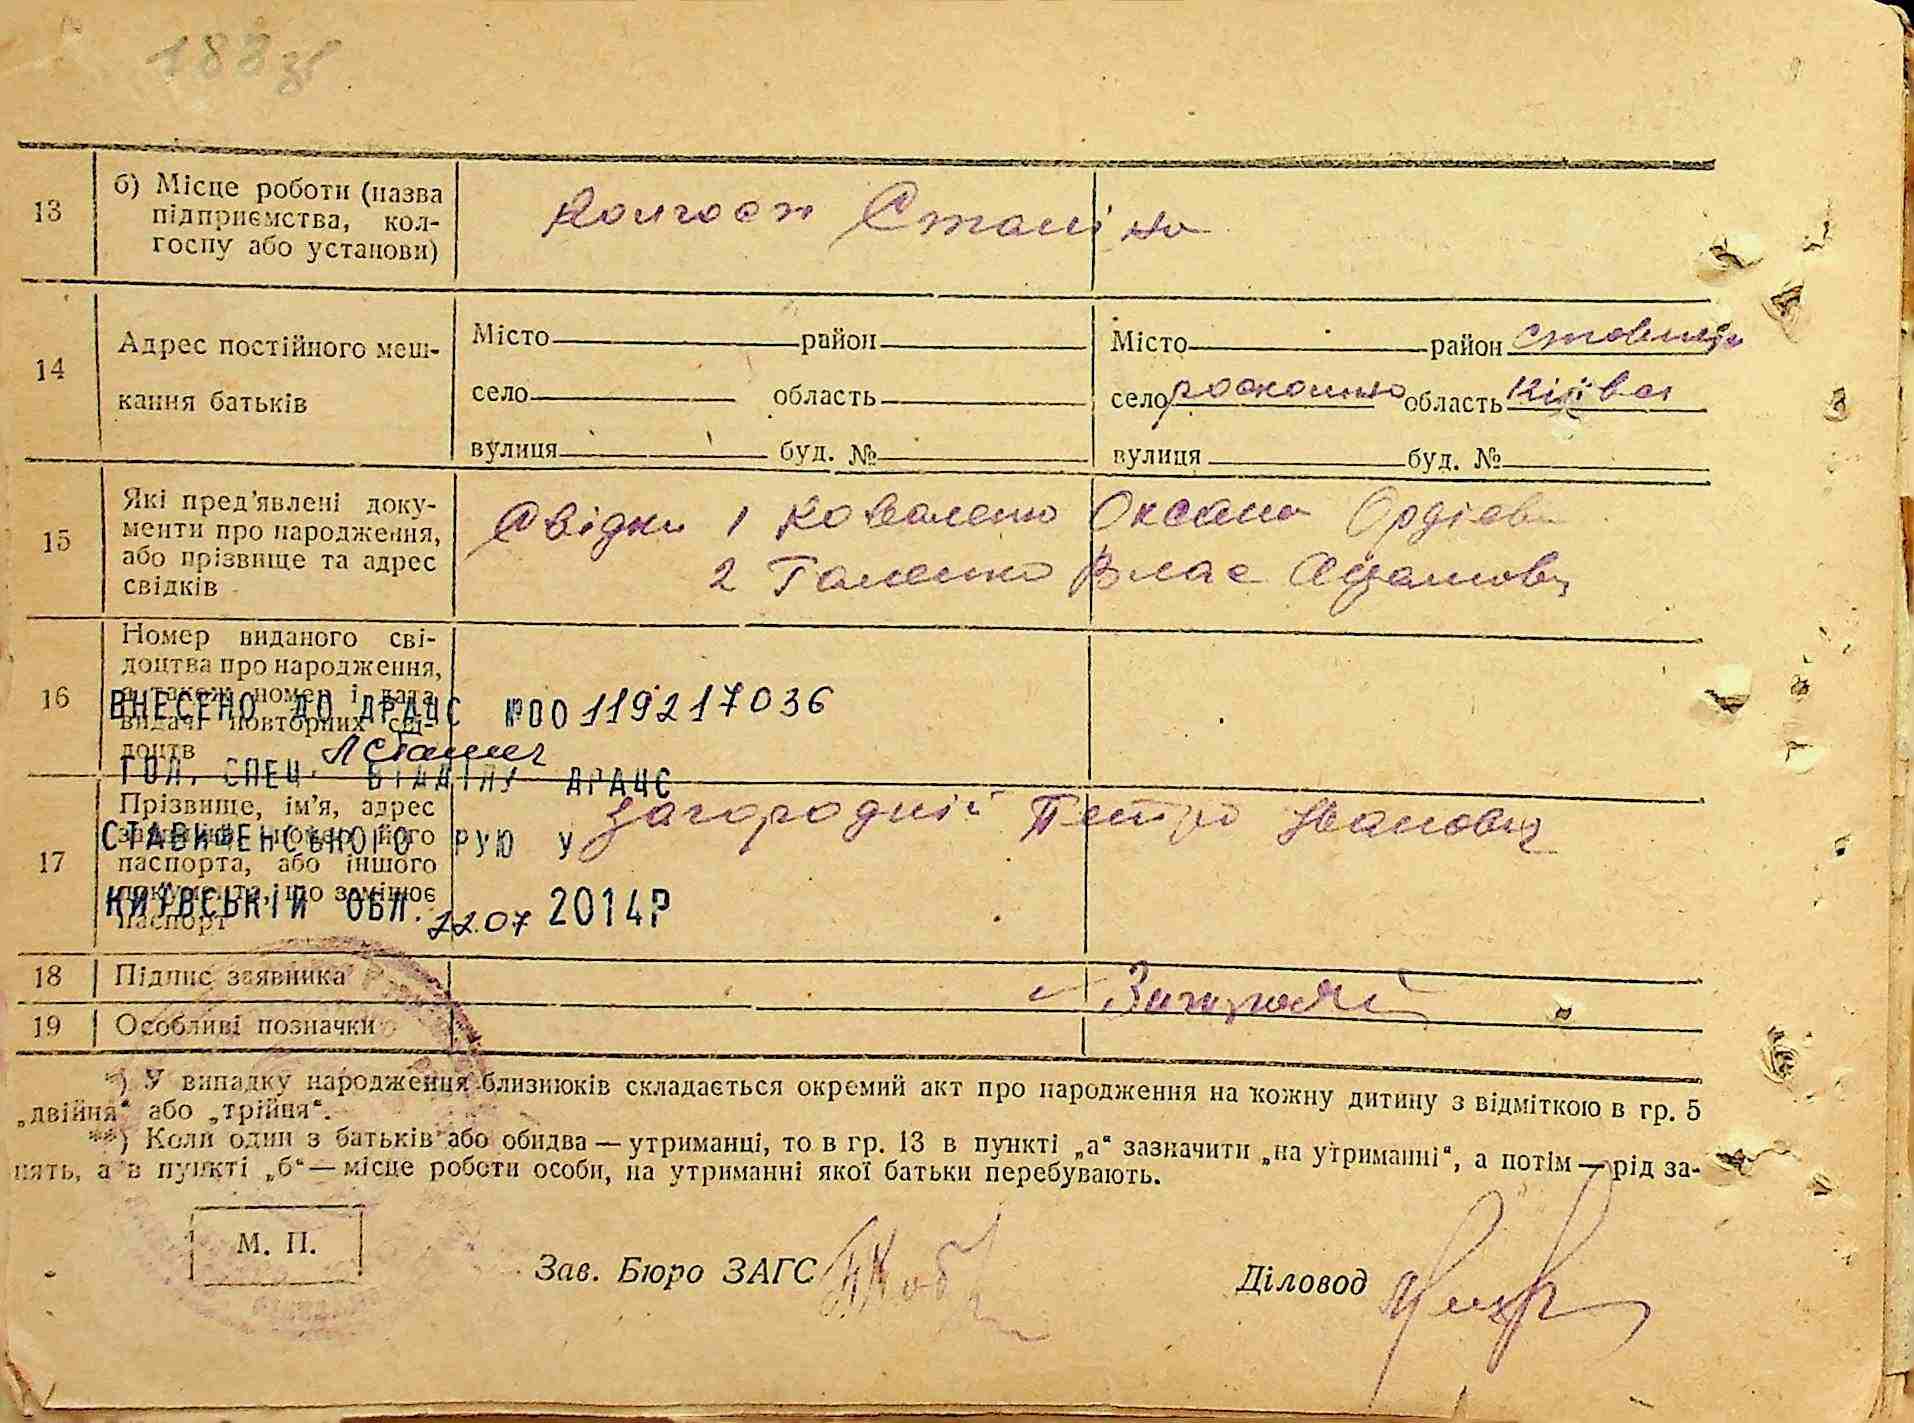 188 зв
13
б) Місце роботи (назва
підприємства, кол-
госпу або установи)
колгосп Сталіна
14
Адрес постійного меш-
кання батьків
Місто район
село область
вулиця буд. №
Місто район
село область Київська
вулиця буд. №
15
Які пред'явлені доку-
менти про народження,
або прізвище та адрес
свідків
Свідки 1 Коваленко Оксана
2 Галенко Влас
16
Номер виданого сві-
доцтва про народження,
а також номер і дата
видачі повторних сві-
доцтв
ВНЕСЕНО ДО ДРАЦС №00119217036
ГОЛ. СПЕЦ. ВІДДІЛУ ДРАЦС
СТАВИЩЕНСЬКОГО РУЮ У
КИЇВСЬКІЙ ОБЛ. 22.07 2014Р
17
Прізвище, ім'я, адрес
заявника, номер його
паспорта, або іншого
документа, що замінює
паспорт
Загородній Петро Іванович
18
Підпис заявника
19
Особливі позначки
*) У випадку народження близнюків складається окремий акт про народження на кожну дитину з відміткою в гр. 5
„двійня“ або „трійня“.
**) Коли один з батьків або обидва — утриманці, то в гр. 13 в пункті „а“ зазначити „на утриманні“, а потім — рід за-
нять, а в пункті „б“ — місце роботи особи, на утриманні якої батьки перебувають.
М. П.
Зав. Бюро ЗАГС
Діловод